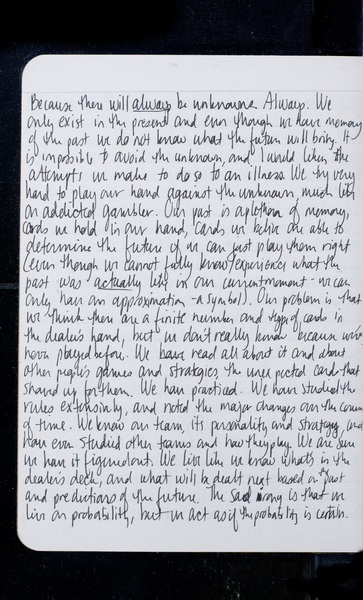 Because there will always be unknowns. Always. We
only exist in the present and even though we have memory
of the past we do not know what the future will bring. It
is impossible to avoid the unknown, and I would liken the
attempts we make to do so to an illness. We try very
hard to play our hand against the unknown, much like
an addicted gambler. Our past is a plethora of memory,
cards we hold in our hand, cards we believe are able to
determine the future if we can just play them right
(even though we cannot fully know/experience what the
past was actually like in our current moment - we can
only have an approximation - a symbol). Our problem is that
we think there are a finite number and type of cards in
the dealer's hand, but we don't really know because we've
never played before. We have read all about it and about
other people's games and strategies, the unexpected cards that
showed up for them. We have practiced. We have studied the
rules extensively, and noted the major changes over the course
of time. We know our team, its personality and strategy, and
have even studied other teams and how they play. We are sure
we have it figured out. We live like we know what's in the
dealer's deck, and what will be dealt next based on the past
and predictions of the future. The sad irony is that we
live on probability, but we act as if the probability is certain.